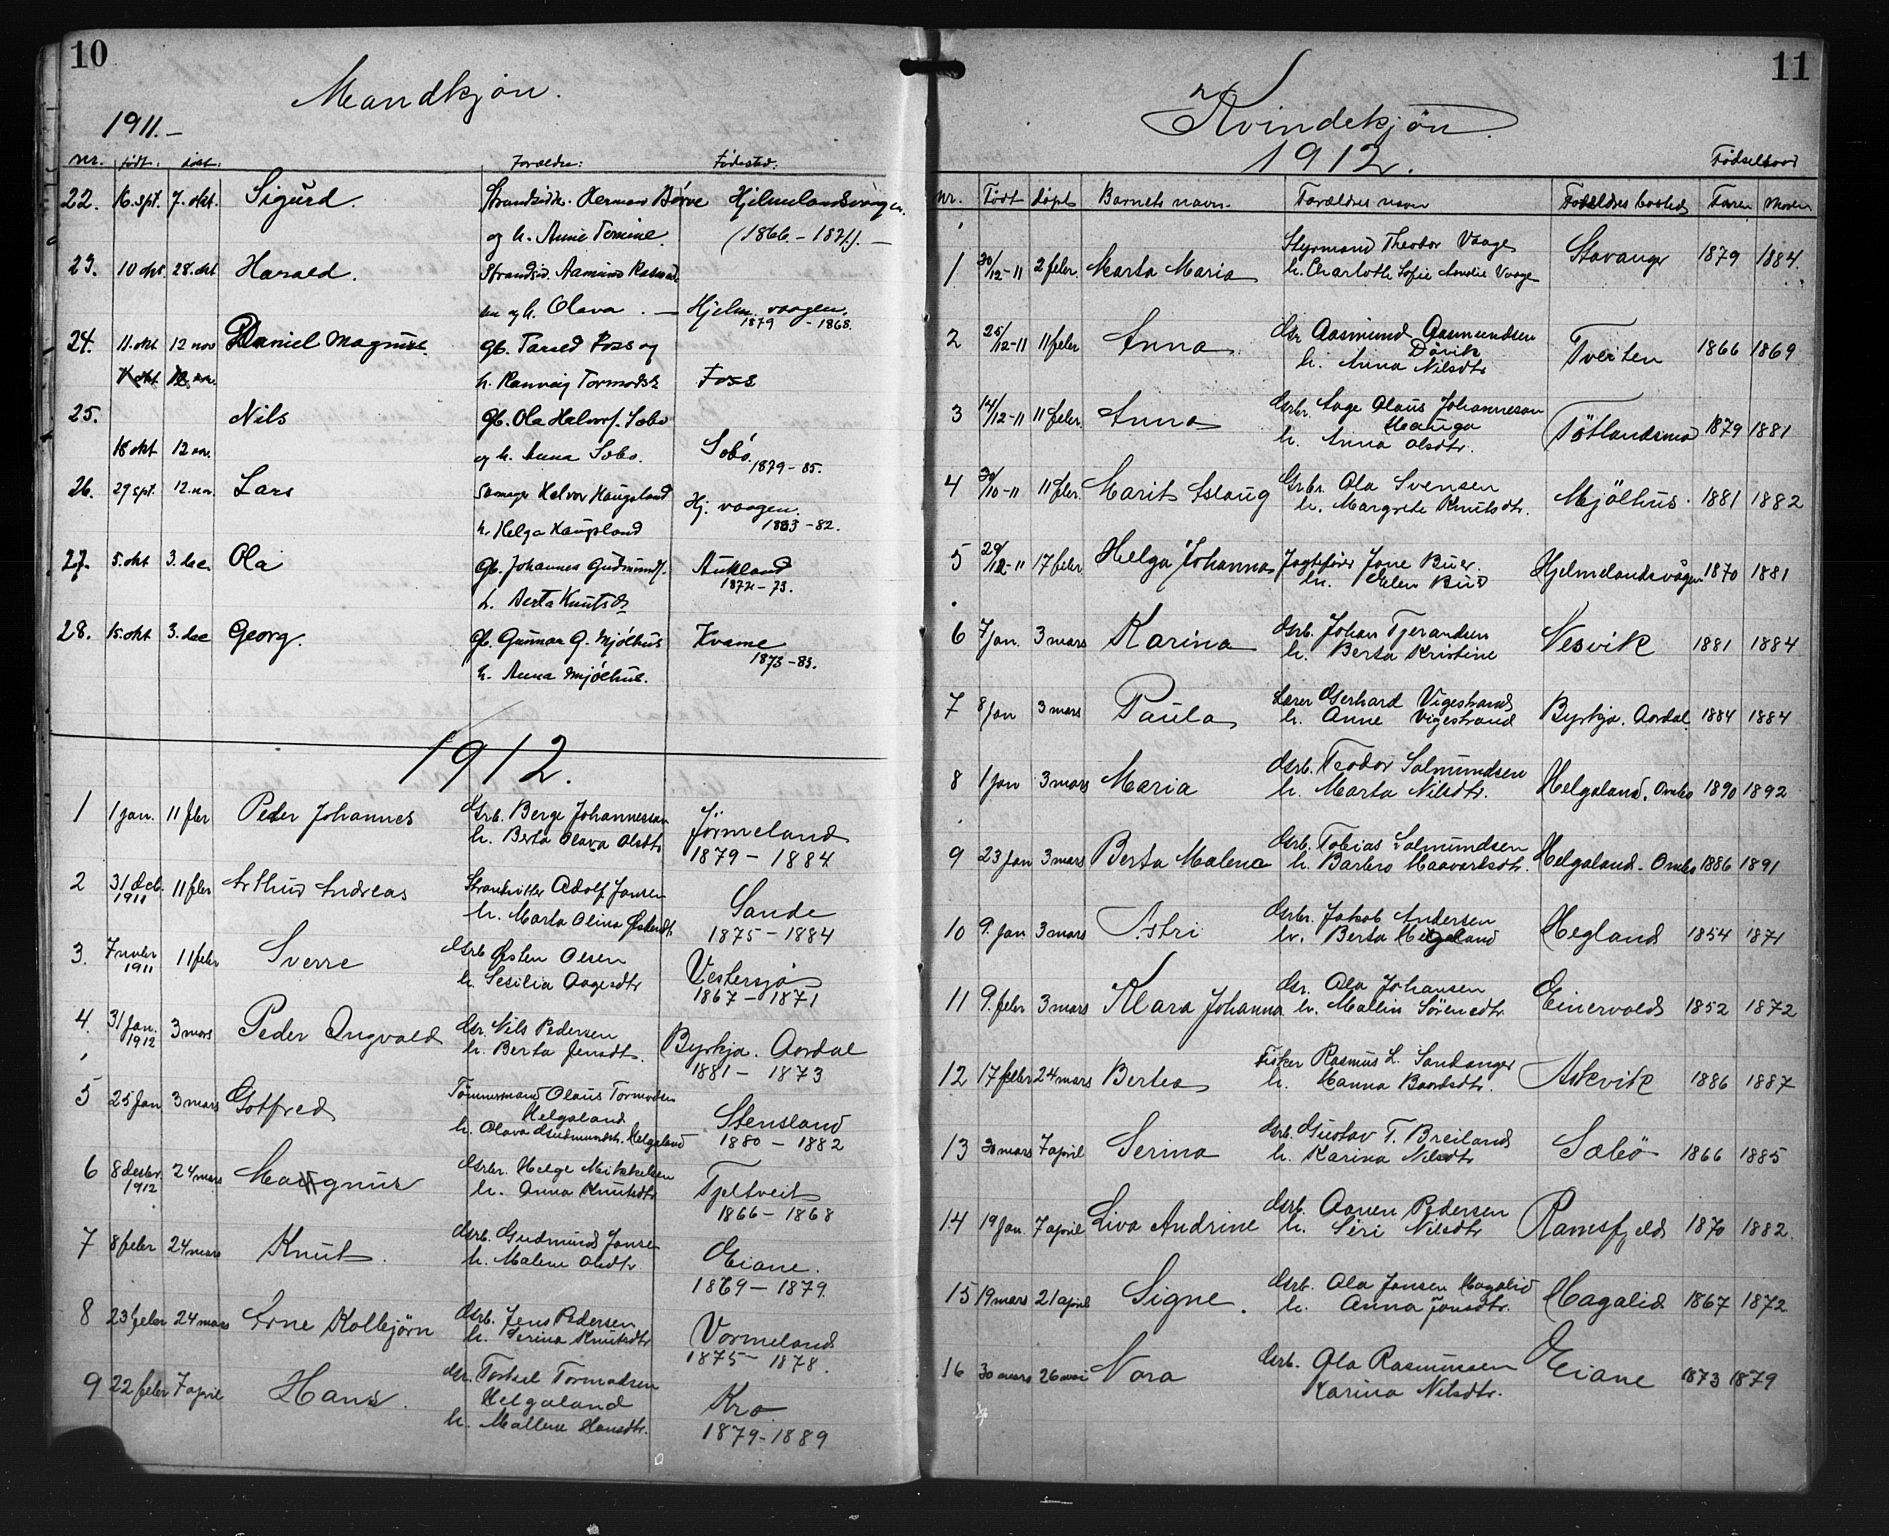 10
Mandkjön.
1911.—
nr. født. döbt. Forældre: Fødested:
22. 16. spt. 7. okt. Sigurd. Strandsidd. Herman Børve Hjelmelandsvågen.
og h. Anne Temine. (1866. – 1871). –
23. 10 okt 28. okt Harald. Strandsid. Aamund Rasmus
sen og h. Olava. — Hjelm. vaagen.
1879 – 1868.
24. 11. okt 12 nov Daniel Magnus. gb. Tarald Foss og
h. Ranveig Tormodsd. Foss
25. Nils gb. Ola Halvorf. Sobo
18 okt 12 nov. og h. Anna Sobo. Sobo. 1879 – 85.
26. 29 spt. 12. nov. Lars Halvor Haugsland Hj. vaagen.
h. Helga Haugsland 1883 – 82.
27. 5. okt 3. dec. Ola gb. Johannes Gudmundf. Aukland
h. Berta Knutsd. 1872 – 73.
28. 15. okt 3. dec Georg. gb. Gunnar G. Mjölhus Kvame
h. Anna Mjölhus. 1873 – 83.
1912.
1 1 jan. 11 febr Peder Johannes Grb. Berge Johannessen Jørmeland
h. Berta Olava Olsdtr 1879 – 1884
2 31 dcb. 1911 11 febr Arthur Andreas Strandsitter Adolf Jansen Sande
h. Marta Olina Østensdtr 1875 – 1884
3. 7 nvbr 1911 11 febr Sverre Grb Østen Olsen Vestersjö
h. Sesilia Aagesdtr 1867 – 1871
4. 31 Jan. 1912 3 mars Peder Ingvald Gr. Nils Pedersen Byrkja. Aordal
h. Berta Jensdtr. 1881 – 1873
5 25 Jan 3 mars Gotfred Tømmermand Olaus Tormodsen
Helgaland Stensland
h. Olava Gudmundsdtr. Helgaland 1880 – 1882
6 8 desbr 1912 24 mars Magnus Grbr. Helge Mikkelsen Tjeltveit
h. Anna Knutsdtr 1866 – 1868
7 8 febr 24 mars Knut. Grb. Gudmund Jansen Eiane.
h. Malene Olsdtr 1869 – 1879.
8 23 febr 24 mars Arne Kolbjörn Grb. Jens Pedersen Vormeland
h. Serina Knutsdtr 1875 – 1878.
9 22 febr 7 april Hans. Gr. Torkel Tormodsen
Helgaland Kro
h. Mallene Hansdtr. 1879 – 1889
11
Kvindekjön.
1912.
Födselsaar
Nr. Födt Döpt Barnets navn. Forældres navn Forældres bosted Faren Moren
1 30/12-11 2 febr. Marta Maria Styrmand Theodor Vaage Stavanger 1879 1884.
h. Charlothe Sofie Amelie Vaage
2 25/12-11 11 febr Anna Gr Aasmund Aasmundsen Tveiten 1866 1869
Dövik
h. Anna Nilsdtr
3 14/12-11 11 febr. Anna Grbr. Aage Olaus Johannessen Tötlandsmo 1879 1881
Hauga
h. Anna Olsdtr.
4 30/10-11 11 febr. Marit Aslaug Grbr. Ola Svensen Mjölhus. 1881 1882
h. Margrete Knutsdtr.
5 29/12-11 17 febr. Helga Johanna Jagtfører Jone Buer. Hjelmelandsvågen 1870 1881
h. Elen Bue
6 7 Jan. 3 mars Karina Grb. Johan Tjerandsen Nesvik 1881 1884
h. Berta Kristine
7 8 Jan 3 mars Paula Lærer Gerhard Vigestrand Byrkja. Aordal 1884 1884
h. Anne Vigestrand
8 1 jan 3 mars Maria Grb. Teodor Salmundsen Helgaland. Ombo 1890 1892
h. Marta Nilsdtr.
9 23 Jan 3 mars Berta Malene Grb. Tobias Salmundsen Helgaland. Ombo 1886 1891
h. Barbro Haavarsdtr.
10 9. Jan 3 mars Astri Grbr. Jakob Andersen Hegland 1854 1871
h. Berta Hegland
11 9. febr 3 mars Klara Johanna Gr. Ola Johansen Einervold 1852 1872
h. Mallin Sörensdtr.
12 17 febr 24 mars Bertea Fisker Rasmus L. Sandanger Askvik 1886 1887
h. Hanna Baardsdtr.
13 30 mars 7 april Serina Grb. Gustav T. Breiland Sæbö 1866 1885
h. Karina Nilsdtr
14 19 Jan. 7 april Liva Andrine Grb. Aanen Pedersen Ramsfjeld 1870 1882.
h. Siri Nilsdtr
15 19 mars 21 april Signe. Grb. Ola Jansen Hagalid Hagalid 1867 1872
h. Anna Jonsdtr.
16 30 mars 26 mai Nora Grb. Ola Rasmussen Eiane 1873 1879
Karina Nilsdtr.